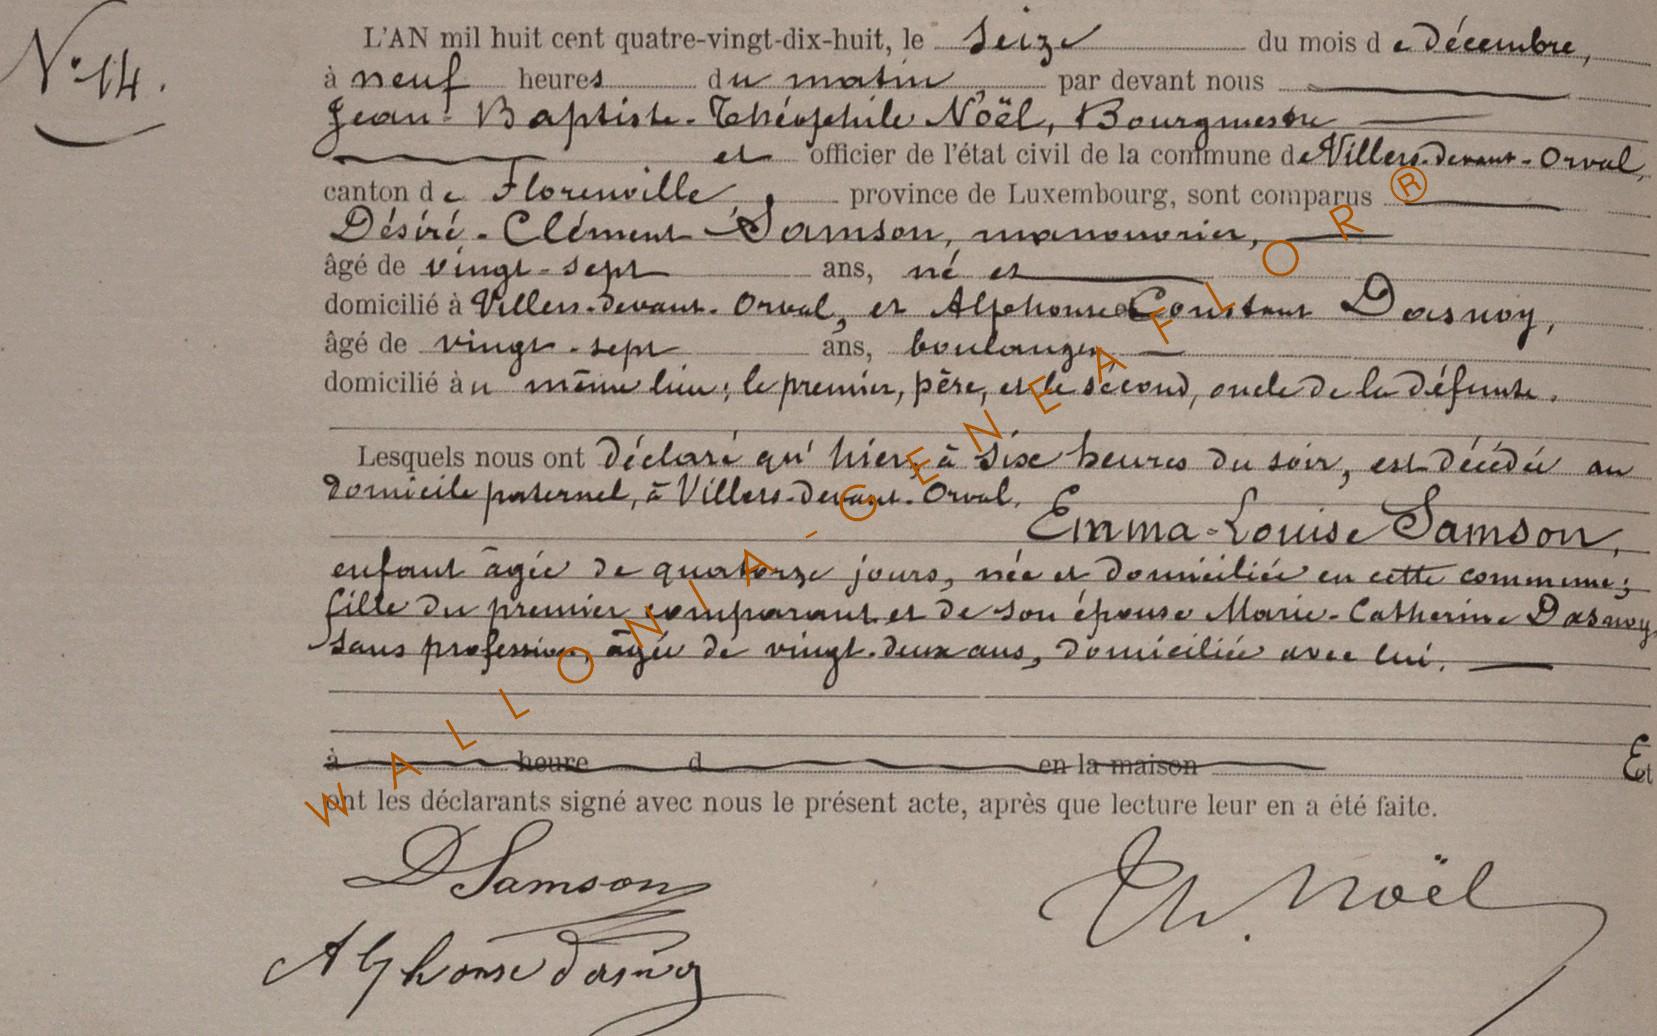 N° 14.
L'AN mil huit cent quatre-vingt-dix-huit, le seize du mois de décembre,
à neuf heures du matin, par devant nous
Jean-Baptiste-Théophile Noël, Bourgmestre
et officier de l'état civil de la commune de Villers-devant-Orval,
canton de Florenville, province de Luxembourg, sont comparus
Désiré-Clément Samson, manouvrier,
âgé de vingt-sept ans, né et
domicilié à Villers-devant-Orval, et Alphonse Constant Dasnoy,
âgé de vingt-sept ans, boulanger
domicilié au même lieu; le premier, père, et le second, oncle de la défunte.
Lesquels nous ont déclaré qu'hier, à six heures du soir, est décédée au
domicile paternel, à Villers-devant-Orval,
Emma-Louise Samson,
enfant âgée de quatorze jours, née et domiciliée en cette commune;
fille du premier comparant et de son épouse Marie-Catherine Dasnoy
sans profession, âgée de vingt-deux ans, domiciliée avec lui.
à heure d en la maison Et
ont les déclarants signé avec nous le présent acte, après que lecture leur en a été faite.
D Samson
Th. Noël
Alphonse dasnoy
WALLONIA-GENEAFLOR ®